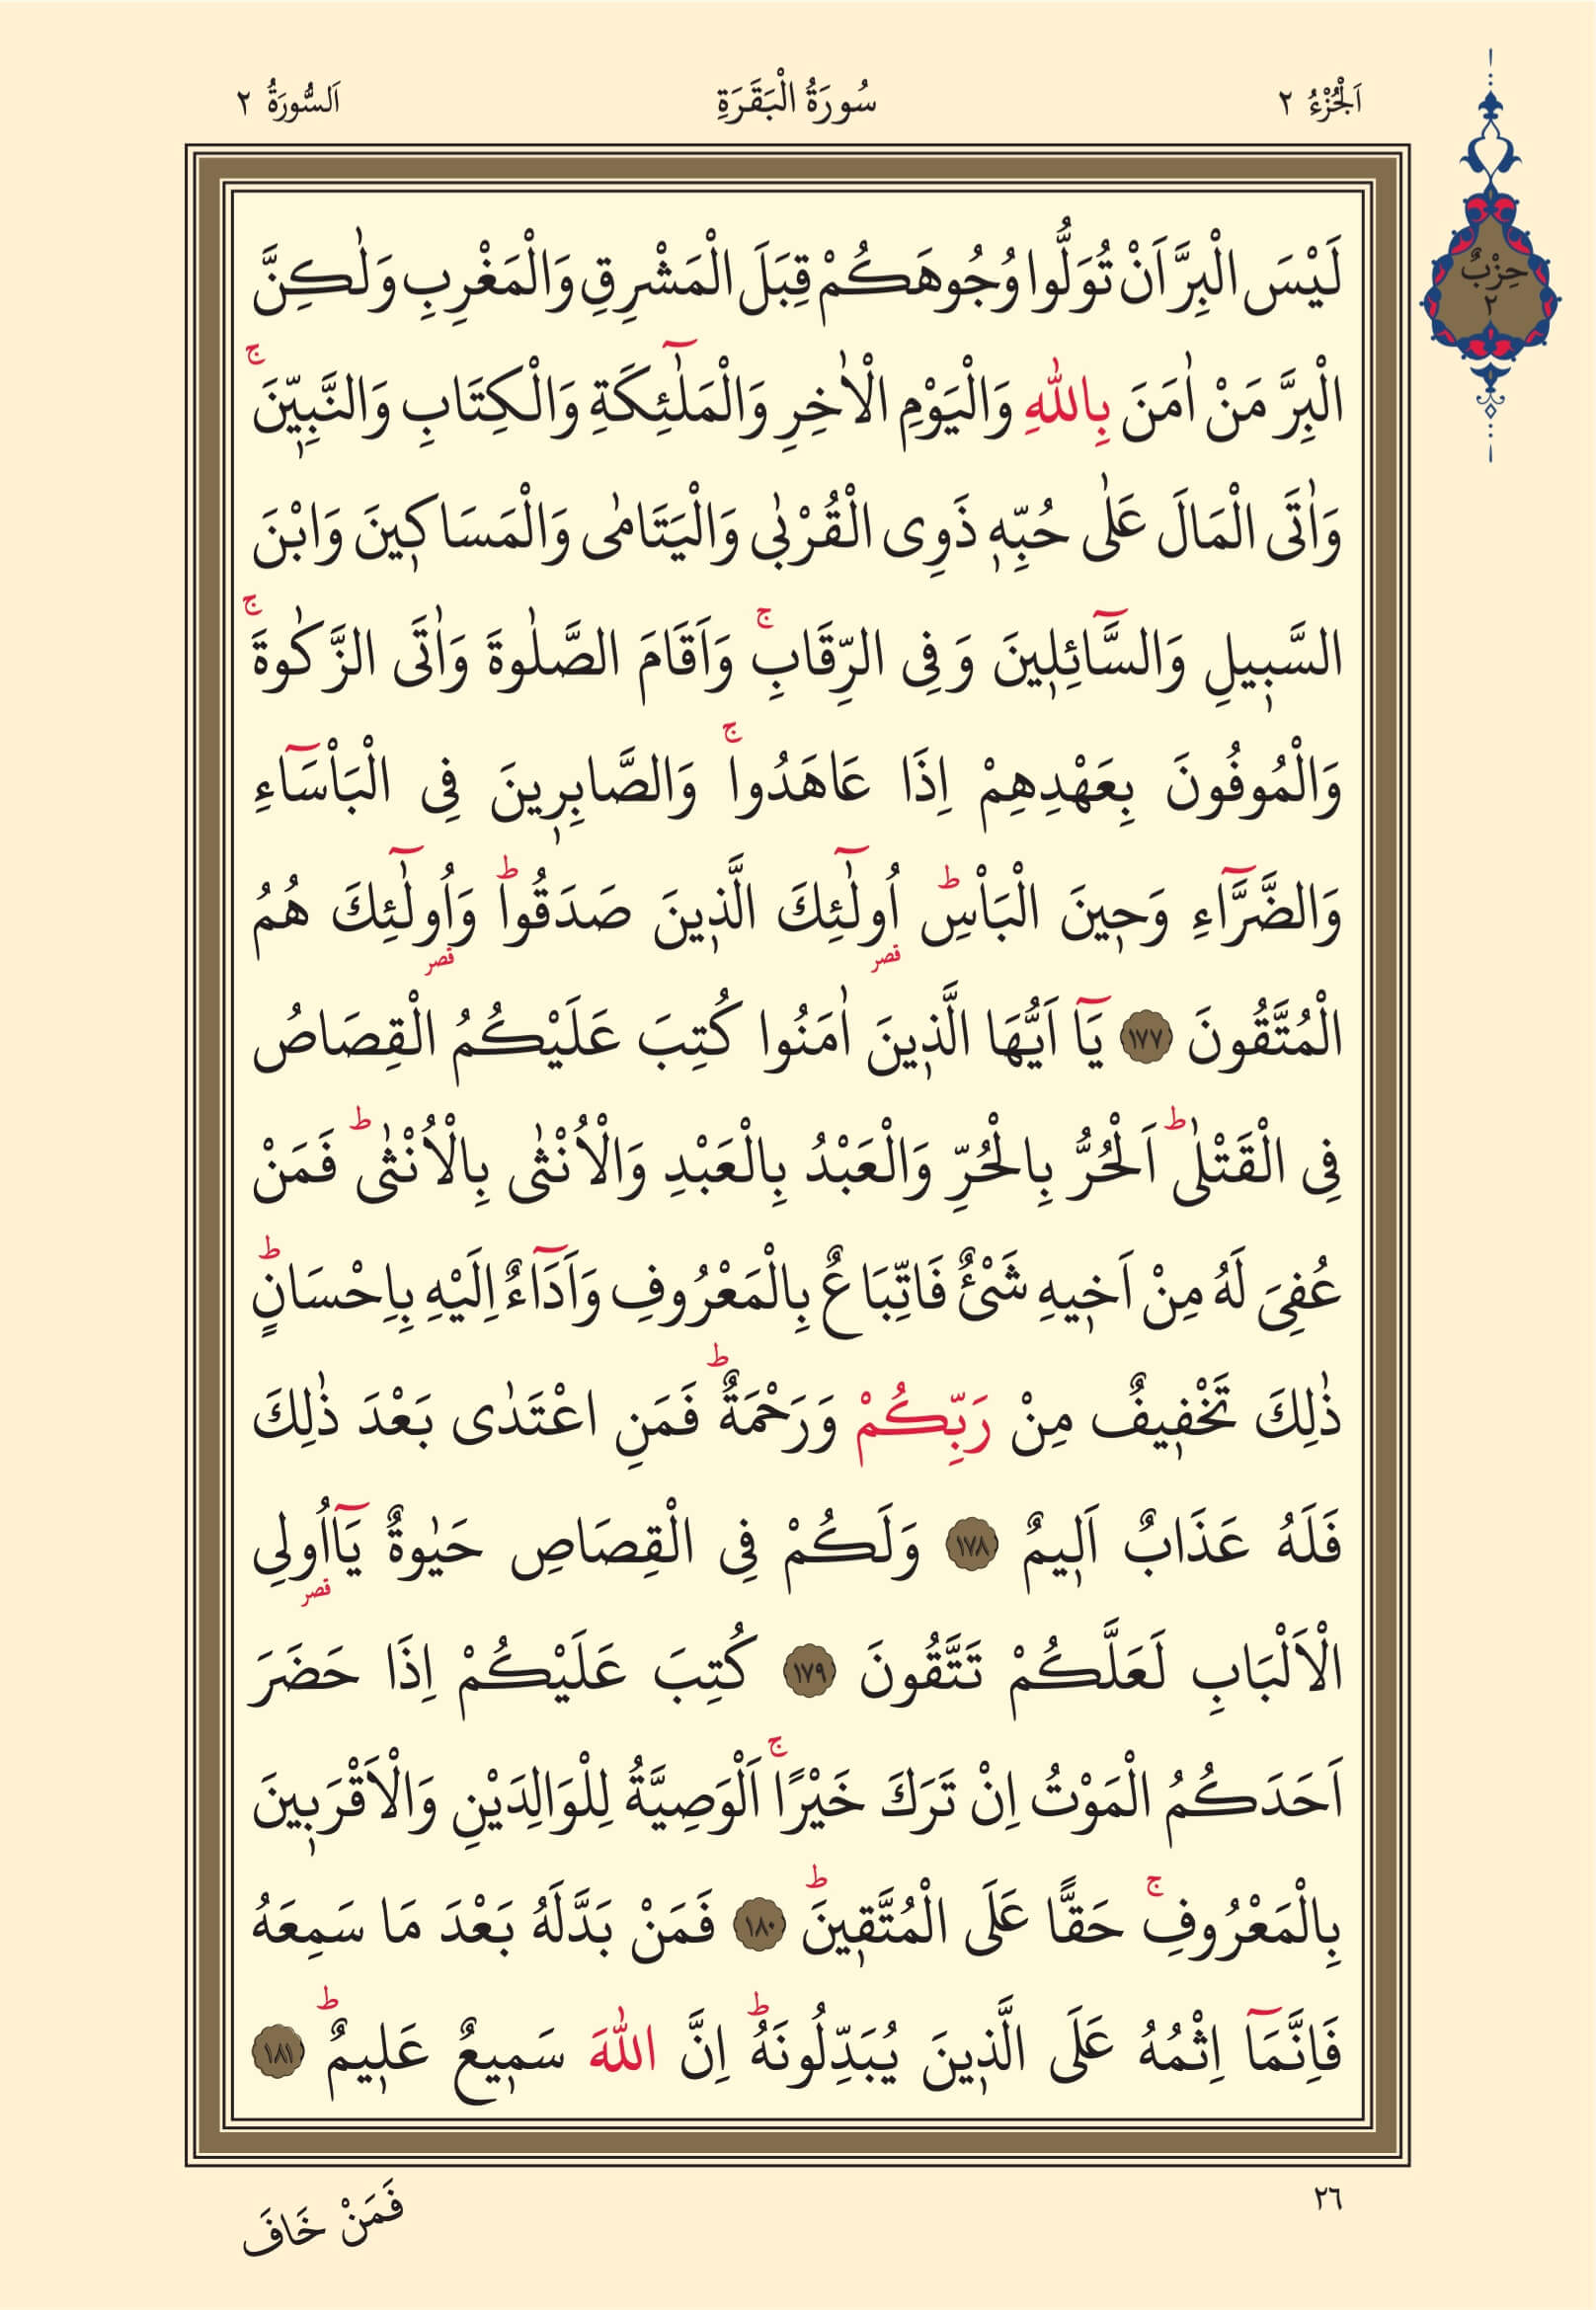 اَلْجُزْءُ ٢
سُورَةُ الْبَقَرَةِ
اَلسُّورَةُ ٢
حِزْبٌ
٢
لَيْسَ الْبِرَّ اَنْ تُوَلُّوا وُجُوهَكُمْ قِبَلَ الْمَشْرِقِ وَالْمَغْرِبِ وَلٰكِنَّ
الْبِرَّ مَنْ اٰمَنَ بِاللّٰهِ وَالْيَوْمِ الْاٰخِرِ وَالْمَلٰٓئِكَةِ وَالْكِتَابِ وَالنَّبِيّ۪نَۚ
وَاٰتَى الْمَالَ عَلٰى حُبِّه۪ ذَوِى الْقُرْبٰى وَالْيَتَامٰى وَالْمَسَاك۪ينَ وَابْنَ
السَّب۪يلِ وَالسَّٓائِل۪ينَ وَفِى الرِّقَابِۚ وَاَقَامَ الصَّلٰوةَ وَاٰتَى الزَّكٰوةَۚ
وَالْمُوفُونَ بِعَهْدِهِمْ اِذَا عَاهَدُواۚ وَالصَّابِر۪ينَ فِى الْبَاْسَٓاءِ
وَالضَّرَّٓاءِ وَح۪ينَ الْبَاْسِۜ اُولٰٓئِكَ الَّذ۪ينَ صَدَقُواۜ وَاُولٰٓئِكَ هُمُ
قصر قصر
الْمُتَّقُونَ ١٧٧ يَٓا اَيُّهَا الَّذ۪ينَ اٰمَنُوا كُتِبَ عَلَيْكُمُ الْقِصَاصُ
فِى الْقَتْلٰىۜ اَلْحُرُّ بِالْحُرِّ وَالْعَبْدُ بِالْعَبْدِ وَالْاُنْثٰى بِالْاُنْثٰىۜ فَمَنْ
عُفِىَ لَهُ مِنْ اَخ۪يهِ شَىْءٌ فَاتِّبَاعٌ بِالْمَعْرُوفِ وَاَدَٓاءٌ اِلَيْهِ بِاِحْسَانٍۜ
ذٰلِكَ تَخْف۪يفٌ مِنْ رَبِّكُمْ وَرَحْمَةٌۜ فَمَنِ اعْتَدٰى بَعْدَ ذٰلِكَ
فَلَهُ عَذَابٌ اَل۪يمٌ ١٧٨ وَلَكُمْ فِى الْقِصَاصِ حَيٰوةٌ يَٓااُولِى
قصر
الْاَلْبَابِ لَعَلَّكُمْ تَتَّقُونَ ١٧٩ كُتِبَ عَلَيْكُمْ اِذَا حَضَرَ
اَحَدَكُمُ الْمَوْتُ اِنْ تَرَكَ خَيْرًاۚ اَلْوَصِيَّةُ لِلْوَالِدَيْنِ وَالْاَقْرَب۪ينَ
بِالْمَعْرُوفِۚ حَقًّا عَلَى الْمُتَّق۪ينَۜ ١٨٠ فَمَنْ بَدَّلَهُ بَعْدَ مَا سَمِعَهُ
فَاِنَّمَٓا اِثْمُهُ عَلَى الَّذ۪ينَ يُبَدِّلُونَهُۜ اِنَّ اللّٰهَ سَم۪يعٌ عَل۪يمٌۜ ١٨١
٢٦
فَمَنْ خَافَ